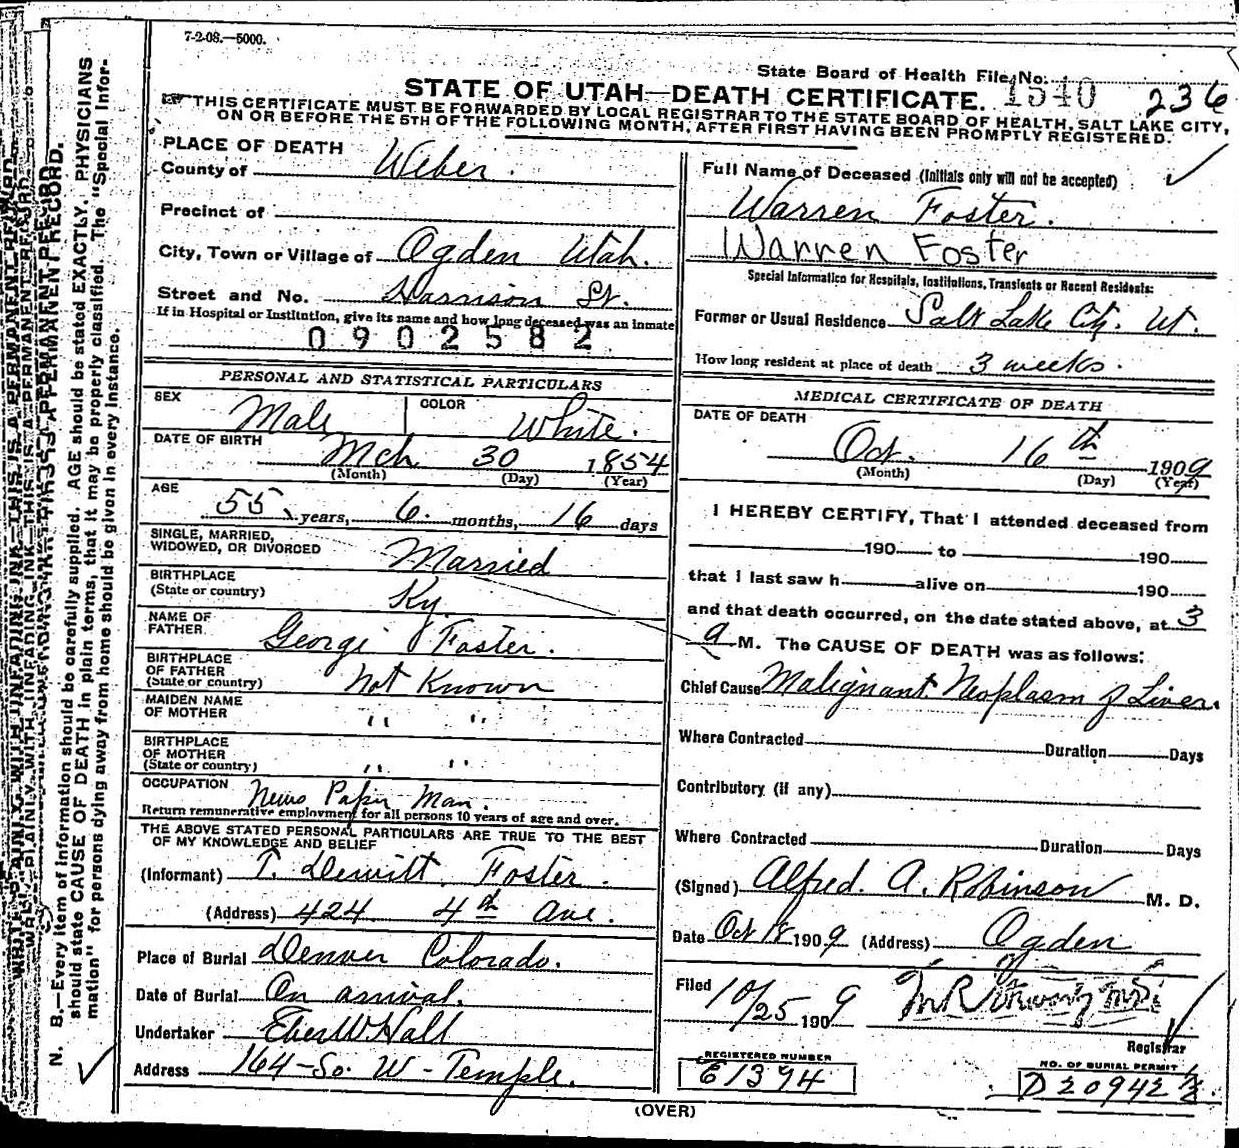 7-2-08.—5000.
State Board of Health File No. 1540 236
STATE OF UTAH—DEATH CERTIFICATE.
THIS CERTIFICATE MUST BE FORWARDED BY LOCAL REGISTRAR TO THE STATE BOARD OF HEALTH, SALT LAKE CITY,
ON OR BEFORE THE 5TH OF THE FOLLOWING MONTH, AFTER FIRST HAVING BEEN PROMPTLY REGISTERED.
PLACE OF DEATH
County of Weber.
Precinct of
City, Town or Village of Ogden Utah.
Street and No. Harrison St.
If in Hospital or Institution, give its name and how long deceased was an inmate
0902582
PERSONAL AND STATISTICAL PARTICULARS
SEX Male COLOR White.
DATE OF BIRTH Mch 30 1854
(Month) (Day) (Year)
AGE 55 years, 6 months, 16 days
SINGLE, MARRIED,
WIDOWED, OR DIVORCED Married
BIRTHPLACE
(State or country) Ky.
NAME OF
FATHER George Foster.
BIRTHPLACE
OF FATHER
(State or country) Not Known
MAIDEN NAME
OF MOTHER " "
BIRTHPLACE
OF MOTHER
(State or country) " "
OCCUPATION News Paper Man.
Return remunerative employment for all persons 10 years of age and over.
THE ABOVE STATED PERSONAL PARTICULARS ARE TRUE TO THE BEST
OF MY KNOWLEDGE AND BELIEF
(Informant) T. Dewitt Foster.
(Address) 424 4th Ave.
Place of Burial Denver Colorado.
Date of Burial On arrival.
Undertaker Eber W Hall
Address 164-So. W-Temple.
Full Name of Deceased (Initials only will not be accepted)
Warren Foster.
Warren Foster
Special Information for Hospitals, Institutions, Transients or Recent Residents:
Former or Usual Residence Salt Lake City. Ut.
How long resident at place of death 3 weeks.
MEDICAL CERTIFICATE OF DEATH
DATE OF DEATH
Oct. 16th 1909
(Month) (Day) (Year)
I HEREBY CERTIFY, That I attended deceased from
190 to 190
that I last saw h alive on 190
and that death occurred, on the date stated above, at 3
a M. The CAUSE OF DEATH was as follows:
Chief Cause Malignant Neoplasm of Liver.
Where Contracted Duration Days
Contributory (if any)
Where Contracted Duration Days
(Signed) Alfred. A. Robinson M. D.
Date Oct 18 1909 (Address) Ogden
Filed 10/25 1909
Registrar
REGISTERED NUMBER
E1394
NO. OF BURIAL PERMIT
D20942
(OVER)
N. B.—Every item of information should be carefully supplied. AGE should be stated EXACTLY. PHYSICIANS
should state CAUSE OF DEATH in plain terms, that it may be properly classified. The "Special Infor-
mation" for persons dying away from home should be given in every instance.